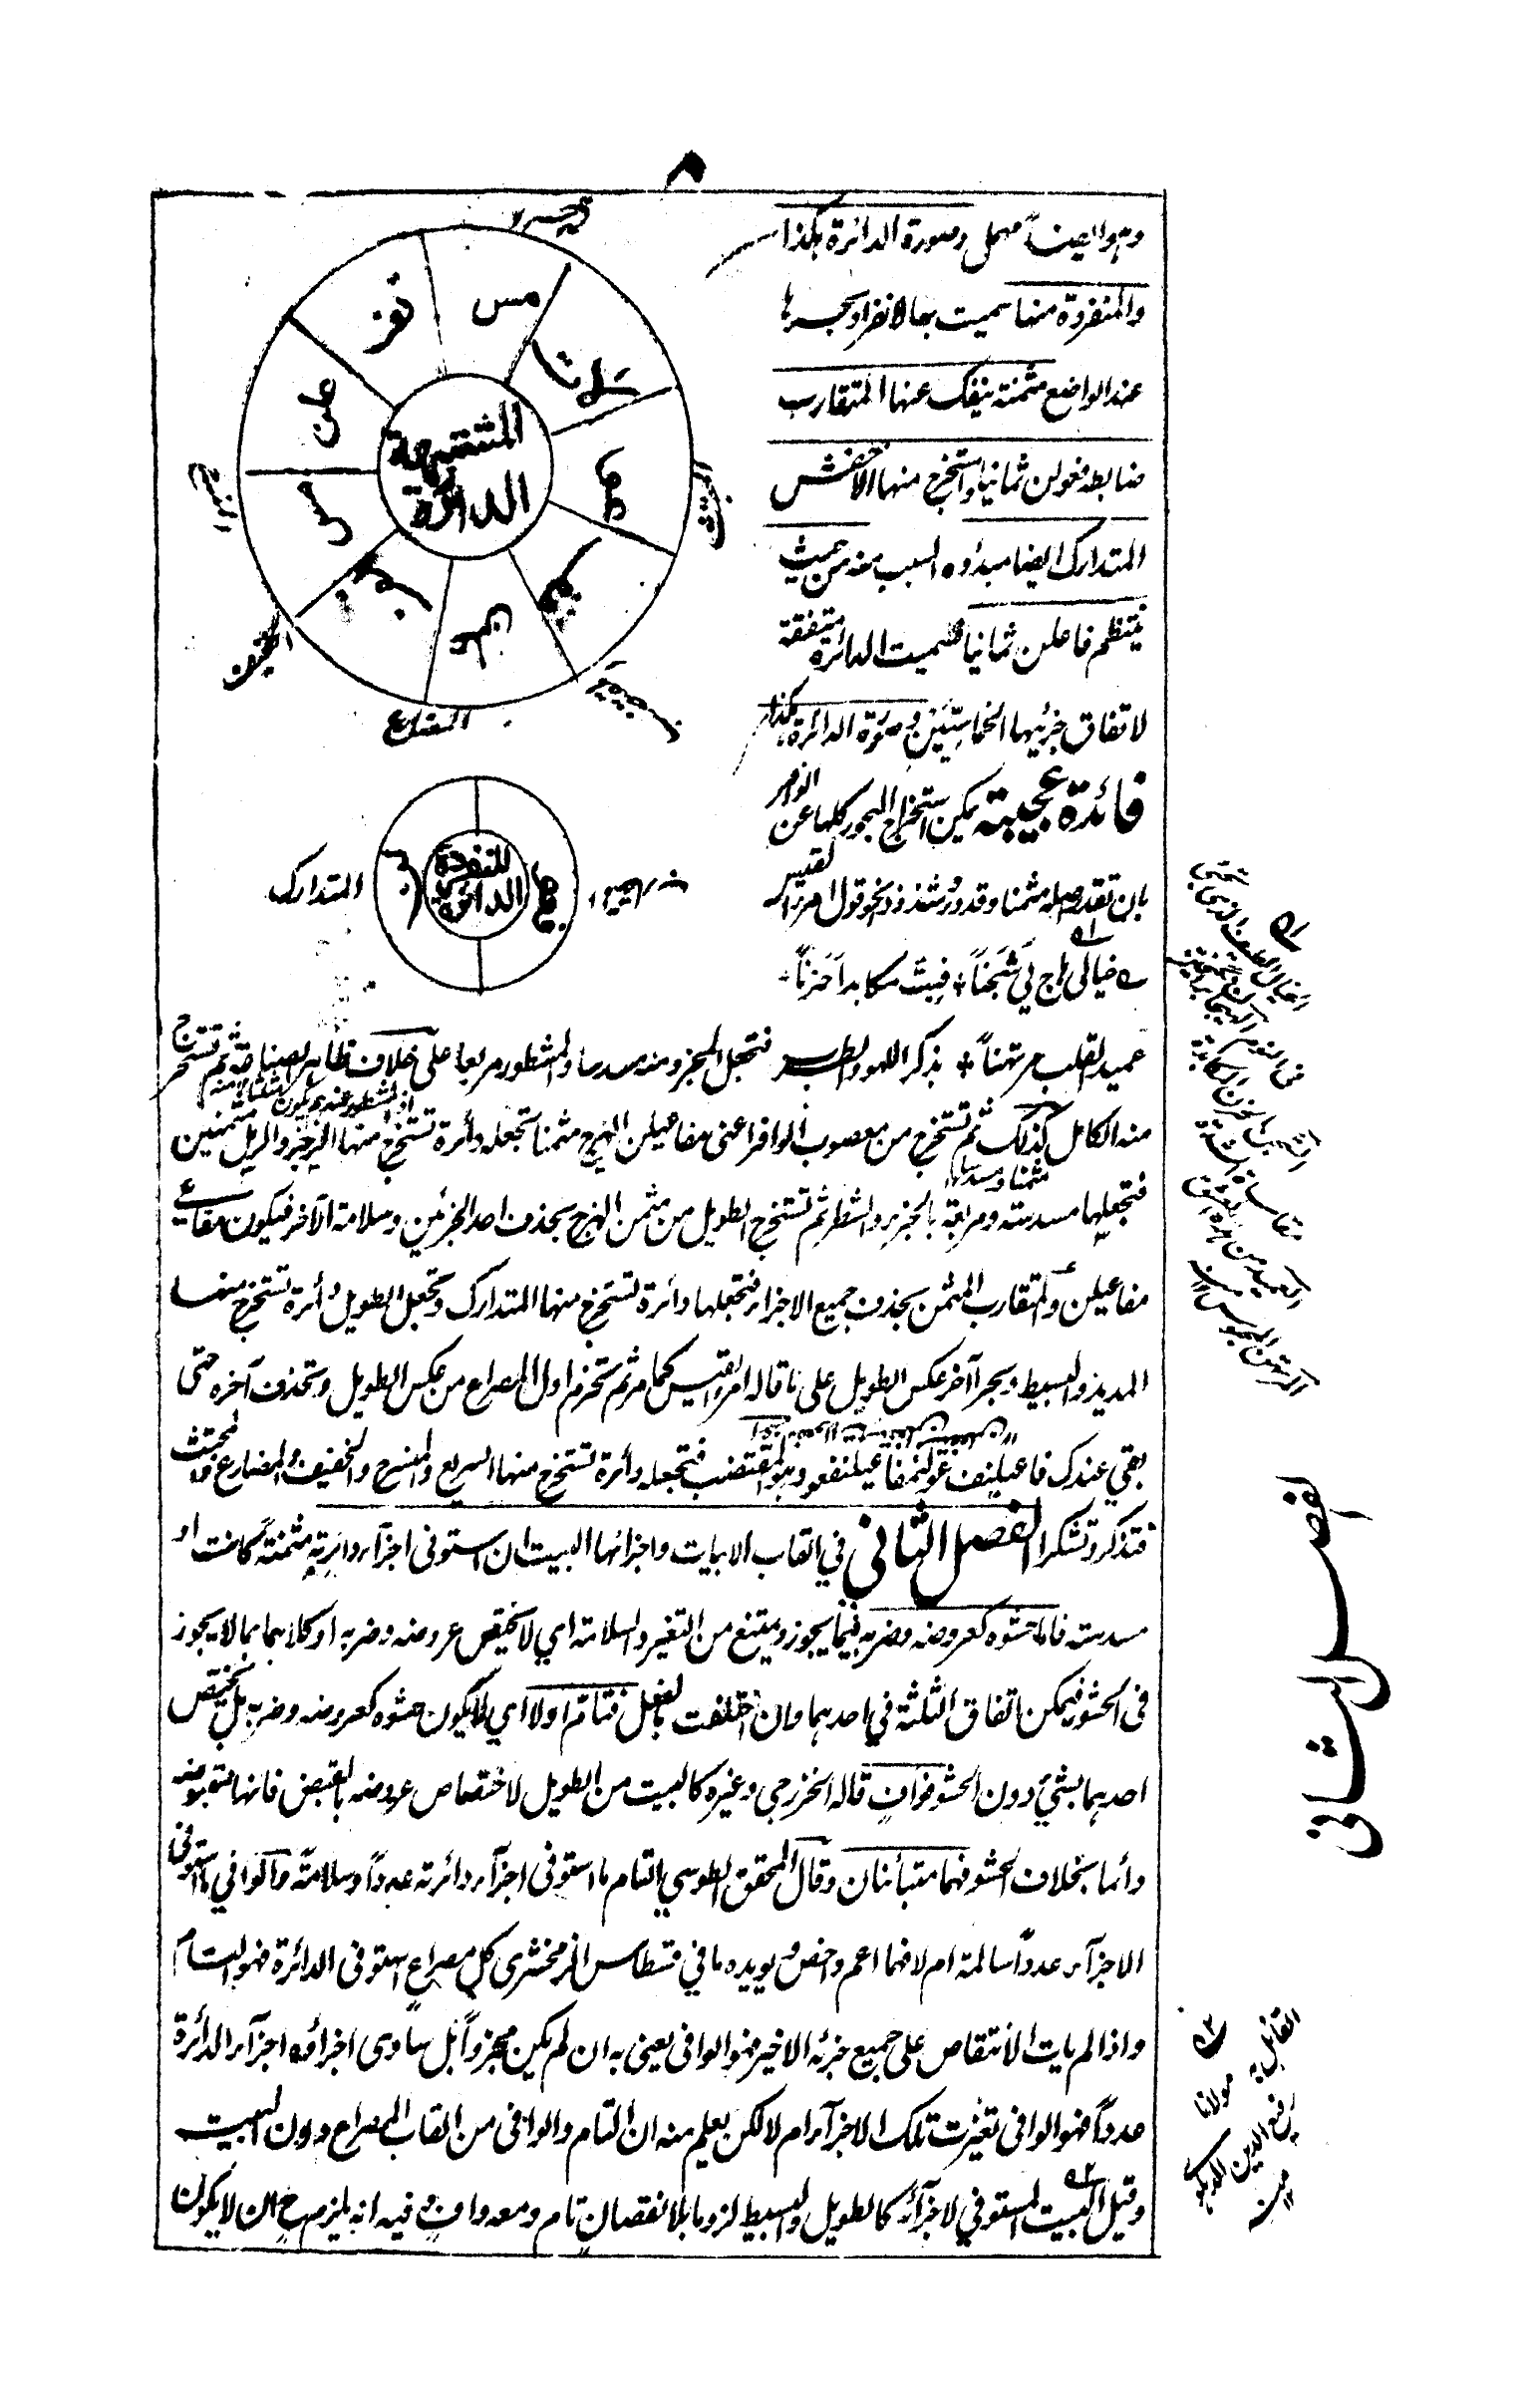 ٨
وهو ايضا مهمل وصورة الدائرة هكذا
والمنفردة منها سميت بها لانفراد بحرها
عند الواضع مثمنة ينفك عنها المتقارب
ضابطه فعولن ثمانيا واستخرج منها الاخفش
المتدارك ايضا مبدؤه السبب منه من حيث
ينتظم فاعلن ثمانيا فسميت الدائرة متفقة
لاتفاق جزئيها الخماسيين وصورة الدائرة هكذا
فائدة عجيبة يمكن استخراج البحور كلها عن الوافر
بان تقدر اصله مثمنا وقد ورد شذوذا نحو قول امرئ القيس
خيالي هاج لي شجنا * فبت مكابدا حزنا
عميد القلب مرتهنا * بذكر اللهو والطرب فتجعل المجزو منه مسدسا والمشطور مربعا على خلاف ظاهر الصناعة ثم تستخرج
منه الكامل كذلك ثم تستخرج من معصوب الوافر اعنى مفاعيلن الهزج مثمنا تجعله دائرة تستخرج منها الرجز والرمل مثمنين
فتجعلها مسدسة ومربعة بالجزء والشطر ثم تستخرج الطويل من مثمن الهزج بحذف احد الجزئين وسلامة الآخر فيكون مفاعي
مفاعيلن والمتقارب المثمن بحذف جميع الاجزاء فتجعلها دائرة تستخرج منها المتدارك وتجعل الطويل دائرة تستخرج منها
المديد والبسيط وبحرا آخر عكس الطويل على ما قاله امرؤ القيس كما مر ثم تخرم اول المصراع من عكس الطويل وتحذف آخره حتى
بقي عندك فاعيلنف عولنمفا عيلنفعو وهو المقتضب فتجعله دائرة تستخرج منها السريع والمنسرح والخفيف والمضارع والمجتث
فتذكر وتشكر الفصل الثاني في القاب الابيات واجزائها البيت ان استوفى اجزاء دائرته مثمنة كانت او
مسدسة فاما حشوه كعروضه وضربه فيما يجوز ويمتنع من التغير والسلامة اي لا يختص عروضه وضربه او كلاهما بما لا يجوز
فى الحشو فيمكن اتفاق الثلثة في احدهما وان اختلفت بالفعل فتام او لا اي لا يكون حشوه كعروضه وضربه بل يختص
احدهما بشئ دون الحشو فواف قاله الخزرجي وغيره كالبيت من الطويل لاختصاص عروضه بالقبض فانها مقبوضه
دائما بخلاف الحشو فهما متبائنان وقال المحقق الطوسي التام ما استوفى اجزاء دائرته عددا وسلامة والوافي ما استوفى
الاجزاء عددا سالمة ام لا فهما اعم واخص ويويده ما في قسطاس الزمخشرى كل مصراع استوفى الدائرة فهو التام
واذا لم يات الانتقاص على جميع جزئه الاخير فهو الوافى يعنى به ان لم يكن مجزوا بل ساوى اجزاؤه اجزاء الدائرة
عددا فهو الوافى تغيرت تلك الاجزاء ام لا لكن يعلم منه ان التام والوافى من القاب المصراع دون البيت
وقيل البيت المستوفي لاجزاء كالطويل والبسيط لزوما بلا نقصان تام ومعه واف وفيه انه يلزم ح ان لا يكون
مس
تفع
علن
المشتبهة
الدائرة
المضارع
الخفيف
المنفردة
الدائرة
المتدارك
الفصل الثاني
القائل به
مولانا
رفيع الدين الدهلوي
منه